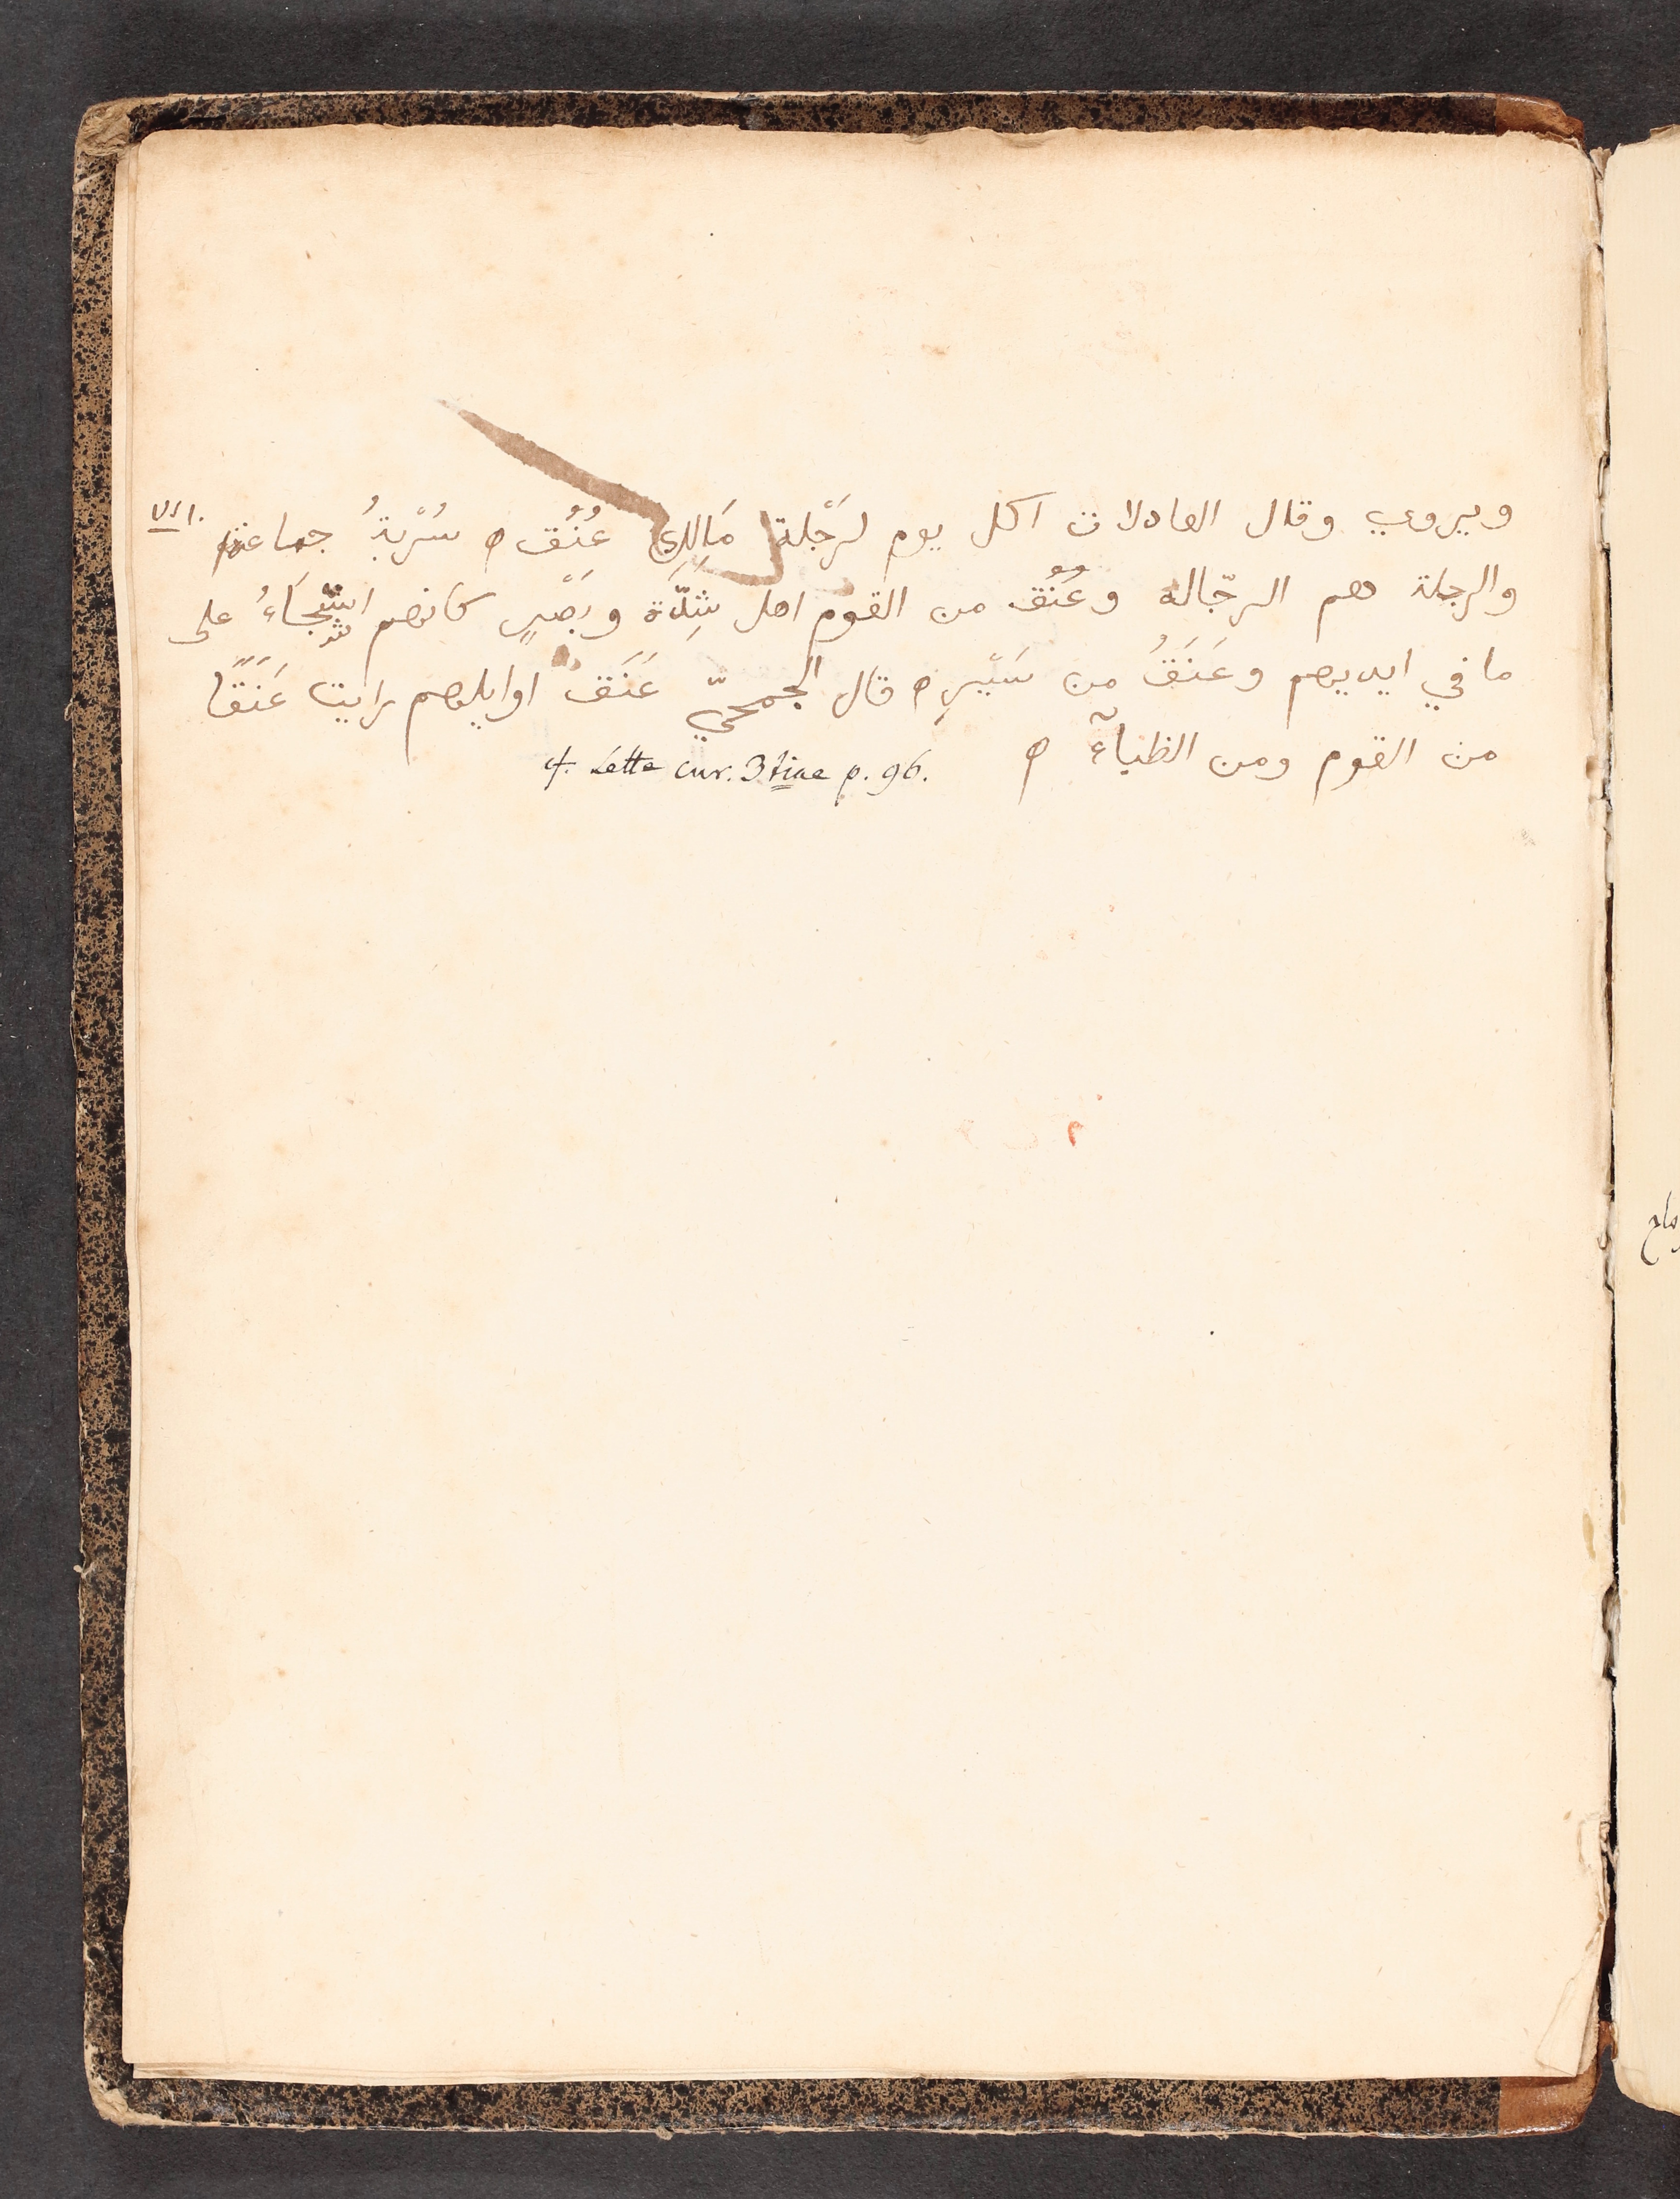 ويروي وقال العادلات اكل يوم لرَجْلة مَالِكِ عُنُق ه سُرْبةُ جماعة ١٧١٠
والرجلة هم الرجّالة وعُنُق من القوم اهل شِدّة وبَصَرٍ كانهم اشِجَآءُ على
ما في ايديهم وعَنَقُ من سَيْرٍ ه قال الجمحيّ عَنَق اوايلهم رايت عَنَقًا
من القوم ومن الظبآء ه
cf. Lette cur. 3tiae p. 96.